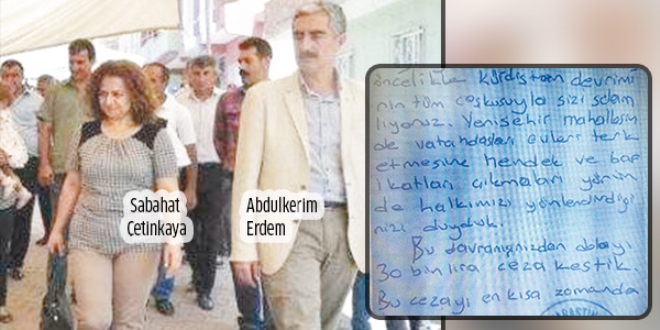 Sabahat
Çetinkaya
Abdulkerim
Erdem
öncelikle kürdistan devrimi
nin tüm coşkusuyla sizi selam
lıyoruz. Yenişehir mahallesin
de vatandaşları evleri terk
etmesine hendek ve bar
ikatları çıkmaları yönün
de halkımızı yönlendirdiği
nizi duyduk.
Bu davranışınızdan dolayı
30 bin lira ceza kestik.
Bu cezayı en kısa zamanda